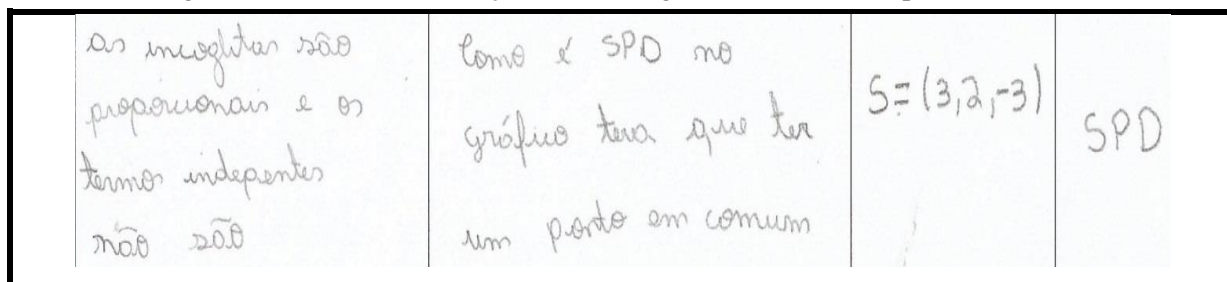 as incoglitas são
proporcionais e os
termos indepentes
não são
Como é SPD no
gráfico tera que ter
um ponto em comum
S=(3,2,-3)
SPD